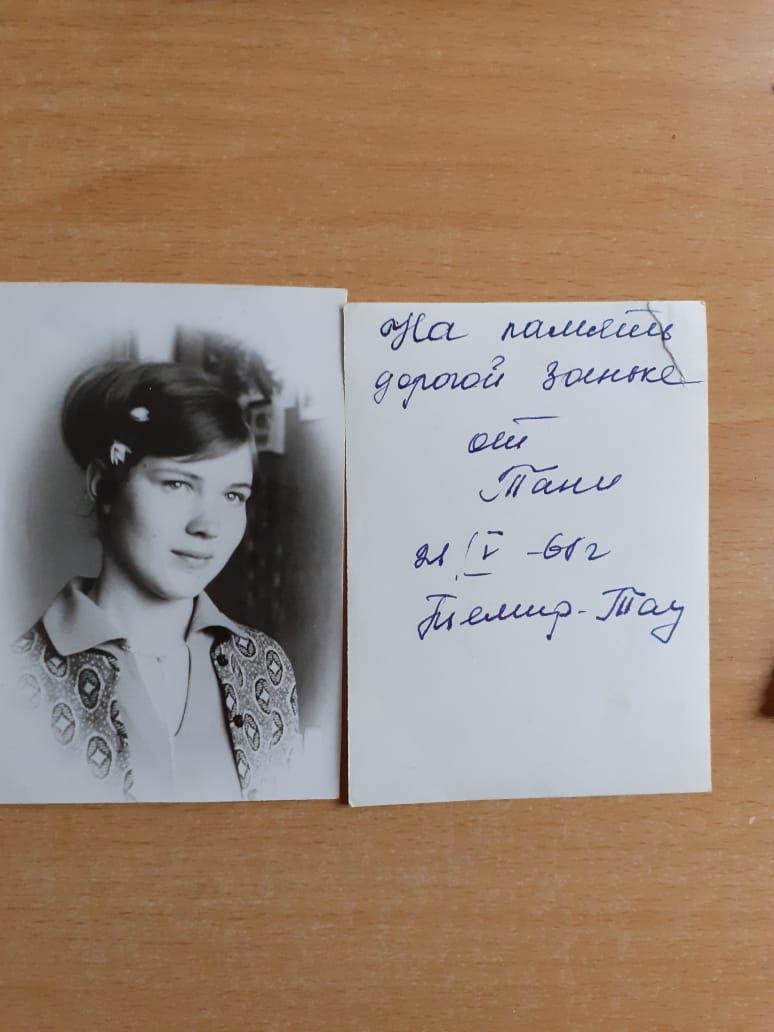 На память
дорогой Заньке
от
Тани
21/V -68г
Темир-Тау